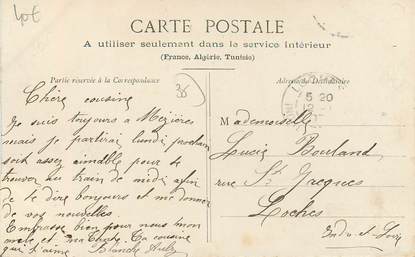 40€
CARTE POSTALE
A utiliser seulement dans le service Intérieur
(France, Algérie, Tunisie)
Partie réservée à la Correspondance
Adresse du Destinataire
38
5 20
Chère cousine
Je suis toujours à Mezières
mais je partirai lundi prochain
soit assez aimable pour te
trouver au train de midi afin
de te dire bonjours et me donner
de vos nouvelles
Embrasse bien pour nous mon
oncle et ma tante. Ta cousine
qui t'aime Blanche
Mademoiselle
Lucie Bouland
rue St Jacques
Loches
Indre et Loire